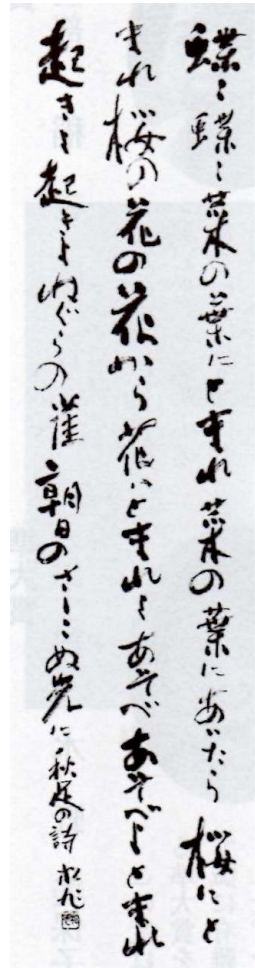 蝶々蝶々菜の葉にとまれ菜の葉にあいたら桜にと
まれ桜の花の花から花へとまれよあそべあそべよとまれ
起きよ起きよねぐらの雀朝日のさしこぬ先に 秋足の詩